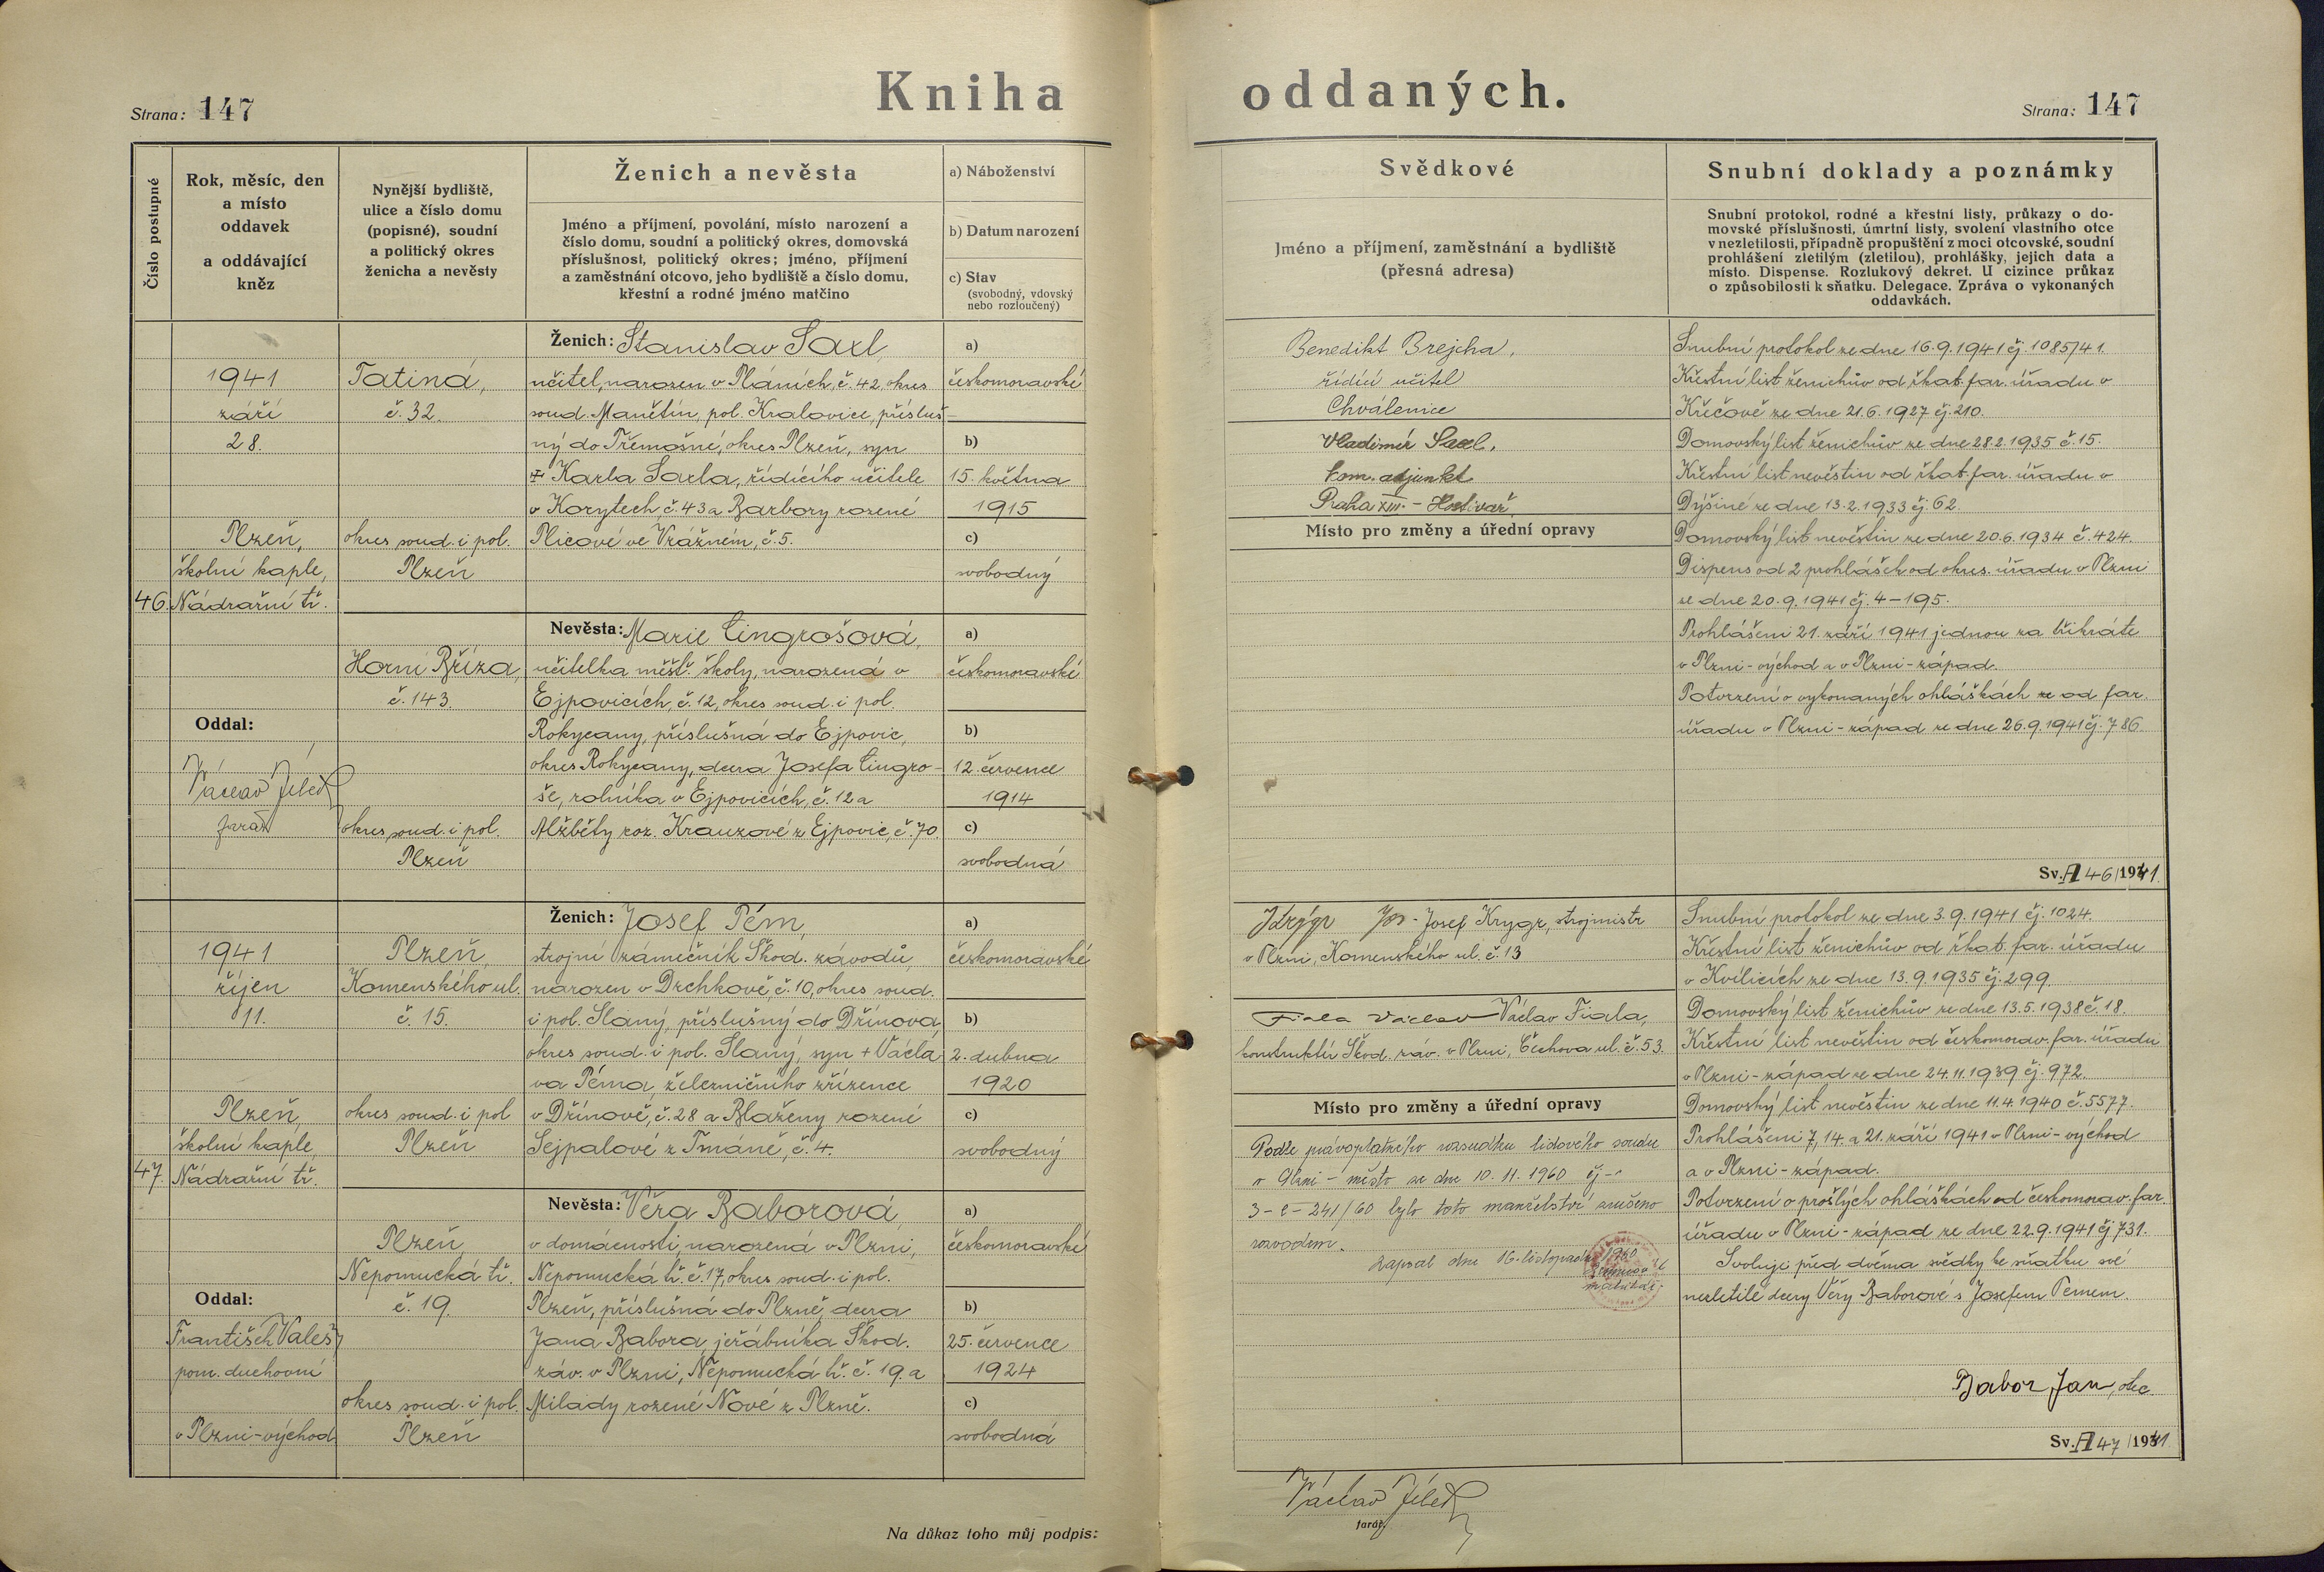 Kniha oddaných.
Strana: 147
Strana: 147
Číslo postupné
Rok, měsíc, den
a místo
oddavek
a oddávající
kněz
Nynější bydliště,
ulice a číslo domu
(popisné), soudní
a politický okres
ženicha a nevěsty
Ženich a nevěsta
Jméno a příjmení, povolání, místo narození a
číslo domu, soudní a politický okres, domovská
příslušnost, politický okres; jméno, příjmení
a zaměstnání otcovo, jeho bydliště a číslo domu,
křestní a rodné jméno matčino
a) Náboženství
b) Datum narození
c) Stav
(svobodný, vdovský
nebo rozloučený)
Svědkové
Jméno a příjmení, zaměstnání a bydliště
(přesná adresa)
Snubní doklady a poznámky
Snubní protokol, rodné a křestní listy, průkazy o do-
movské příslušnosti, úmrtní listy, svolení vlastního otce
v nezletilosti, případně propuštění z moci otcovské, soudní
prohlášení zletilým (zletilou), prohlášky, jejich data a
místo. Dispense. Rozlukový dekret. U cizince průkaz
o způsobilosti k sňatku. Delegace. Zpráva o vykonaných
oddavkách.
46.
1941
září
28.
Plzeň,
školní kaple,
Nádražní tř.
Oddal:
Václav Jílek
farář
Tatiná,
č. 32.
okres soud. i pol.
Plzeň
Horní Bříza,
č. 143.
okres soud. i pol.
Plzeň
Ženich: Stanislav Saxl,
učitel, narozen v Pláních, č. 42, okres
soud. Manětín, pol. Kralovice, přísluš-
ný do Třemošné, okres Plzeň, syn
Karla Saxla, řídícího učitele
v Korytech, č. 43 a Barbory rozené
Plicové ve Vrážném, č. 5.
Nevěsta: Marie Cingrošová,
učitelka měšť. školy, narozená v
Ejpovicích, č. 12, okres soud. i pol.
Rokycany, příslušná do Ejpovic,
okres Rokycany, dcera Josefa Cingro-
še, rolníka v Ejpovicích, č. 12 a
Alžběty roz. Krauzové z Ejpovic, č. 70.
a)
českomoravské
b)
15. května
1915
c)
svobodný
a)
českomoravské
b)
12. července
1914
c)
svobodná
Benedikt Brejcha,
řídící učitel
Chválenice
Vladimír Saxl,
kom. adjunkt
Praha XIII. - Hostivař
Místo pro změny a úřední opravy
Snubní protokol ze dne 16.9.1941 čj. 1085/41.
Křestní list ženichův od řkat. far. úřadu v
Křečově ze dne 21.6.1927 čj. 210.
Domovský list ženichův ze dne 28.2.1935 č. 15.
Křestní list nevěstin od řkat. far. úřadu v
Dýšině ze dne 13.2.1933 čj. 62.
Domovský list nevěstin ze dne 20.6.1934 č. 424.
Dispens od 2 prohlášek od okres. úřadu v Plzni
ze dne 20.9.1941 čj. 4-195.
Prohlášeni 21. září 1941 jednou za třikráte
v Plzni-východ a v Plzni-západ.
Potvrzení o vykonaných ohláškách ze od far.
úřadu v Plzni-západ ze dne 26.9.1941 čj. 786.
Sv. A 46/1941.
47.
1941
říjen
11.
Plzeň,
školní kaple,
Nádražní tř.
Oddal:
František Valeš,
pom. duchovní
v Plzni-východ
Plzeň,
Komenského ul.
č. 15.
okres soud. i pol
Plzeň
Plzeň,
Nepomucká tř.
č. 19.
okres soud. i pol.
Plzeň
Ženich: Josef Pém,
strojní zámečník Škod. závodů,
narozen v Drchkově, č. 10, okres soud.
i pol. Slaný, příslušný do Dřínova,
okres soud. i pol. Slaný, syn + Václa
va Péma, železničního zřízence
v Dřínově, č. 28 a Blaženy rozené
Sejpalové z Tmáně, č. 4.
Nevěsta: Věra Baborová,
v domácnosti, narozená v Plzni,
Nepomucká tř. č. 17, okres soud. i pol.
Plzeň, příslušná do Plzně, dcera
Jana Babora, jeřábníka Škod.
záv. v Plzni, Nepomucká tř. č. 19. a
Milady rozené Nové z Plzně.
a)
českomoravské
b)
2. dubna
1920
c)
svobodný
a)
českomoravské
b)
25. července
1924
c)
svobodná
Krýgr Jos - Josef Krygr, strojmistr
v Plzni, Komenského ul. č. 13
Fiala Václav Václav Fiala,
konstruktér Škod. záv. v Plzni, Čechova ul. č. 53.
Místo pro změny a úřední opravy
Podle právoplatného rozsudku lidového soudu
v Plzni - město ze dne 10.11.1960 čj-
3-C-241/60 bylo toto manželství zrušeno
rozvodem.
Zapsal dne 16. listopadu 1960
Snubní protokol ze dne 3.9.1941 čj. 1024.
Křestní list ženichův od řkat. far. úřadu
v Kvílicích ze dne 13.9.1935 čj. 299.
Domovský list ženichův ze dne 13.5.1938 č. 18.
Křestní list nevěstin od českomorav. far. úřadu
v Plzni-západ ze dne 24.11.1939 čj. 972.
Domovský list nevěstin ze dne 11.4.1940 č. 5577.
Prohlášeni 7, 14. a 21. září 1941 v Plzni-východ
a v Plzni-západ.
Potvrzení o prošlých ohláškách od českomorav. far.
úřadu v Plzni-západ ze dne 22.9.1941 čj. 731.
Svoluji před dvěma svědky ke sňatku své
nezletilé dcery Věry Baborové s Josefem Pémem.
Babor Jan, otec
Sv. A 47/1941
Na důkaz toho můj podpis:
Václav Jílek
farář.